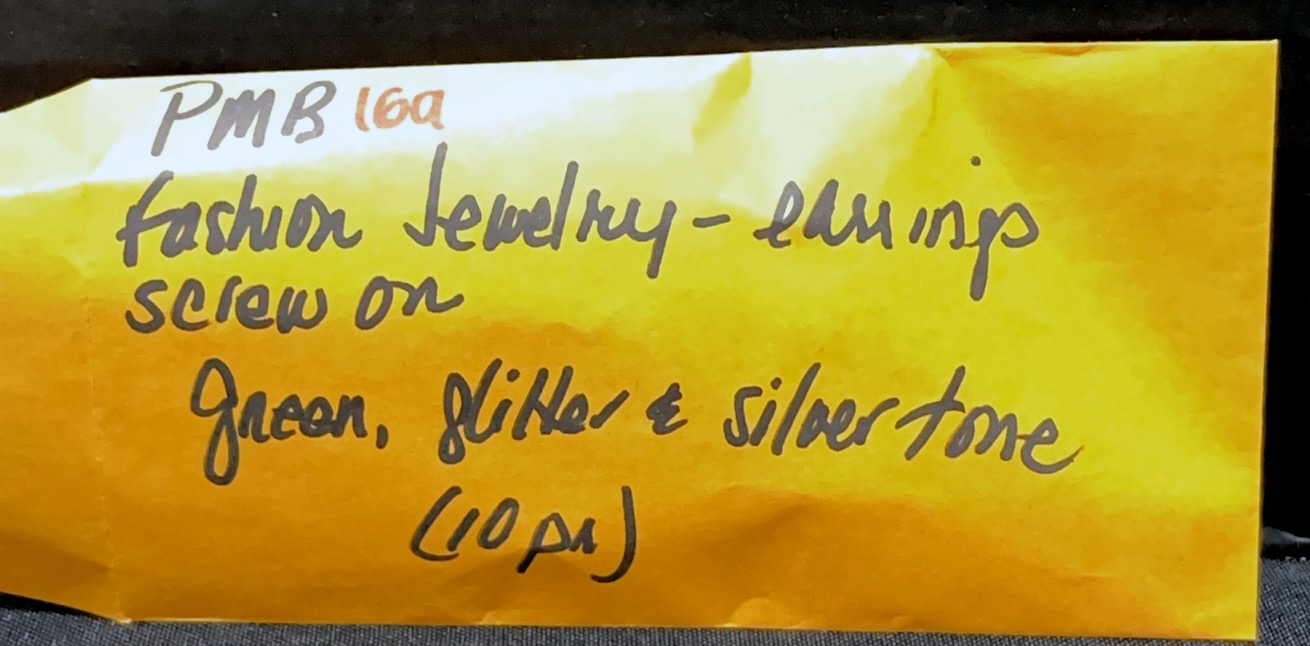 PMB 16a
fashion Jewelry - earrings
screw on
green, glitter & silver tone
(10 pr)